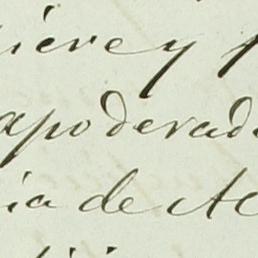 iere y
apoderad
ia de Ac